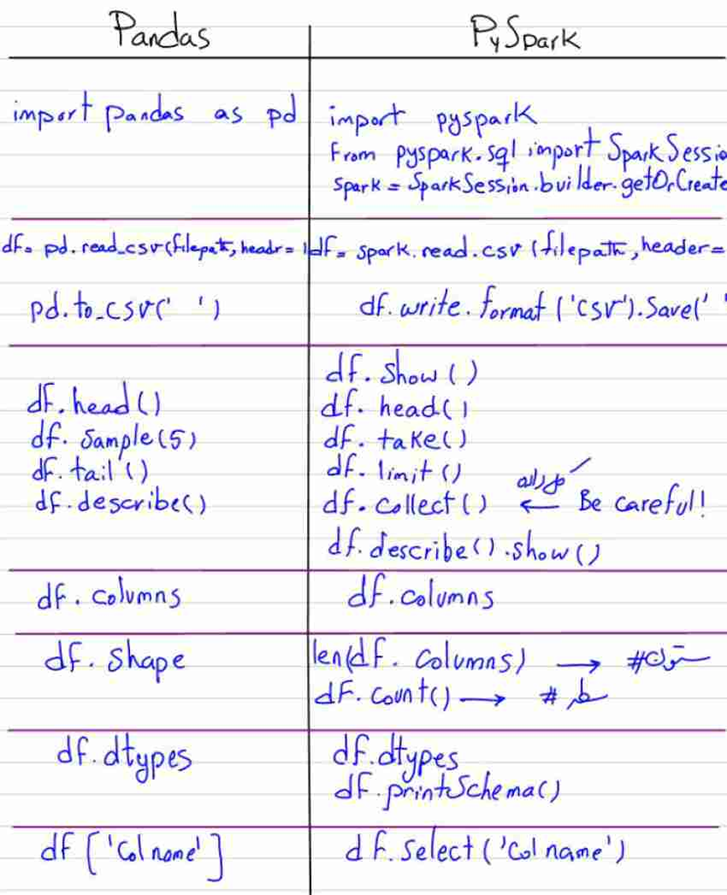 Pandas
PySpark
import pandas as pd
import pyspark
From pyspark.sql import SparkSessio
spark = SparkSession.builder.getOrCreate
df= pd.read_csv(filepath, headr=
df= spark.read.csv (filepath, header=
pd.to_csv(' ')
df.write.format ('csv').Save('
df.head()
df.Sample(5)
df.tail()
df.describe()
df.Show()
df.head()
df.take()
df.limit()
df.collect() ← Be careful!
df.describe().show()
df.columns
df.columns
df.shape
len(df.columns) → #ستون
df.count() → #
df.dtypes
df.dtypes
df.printSchema()
df['Col name']
df.select('Col name')